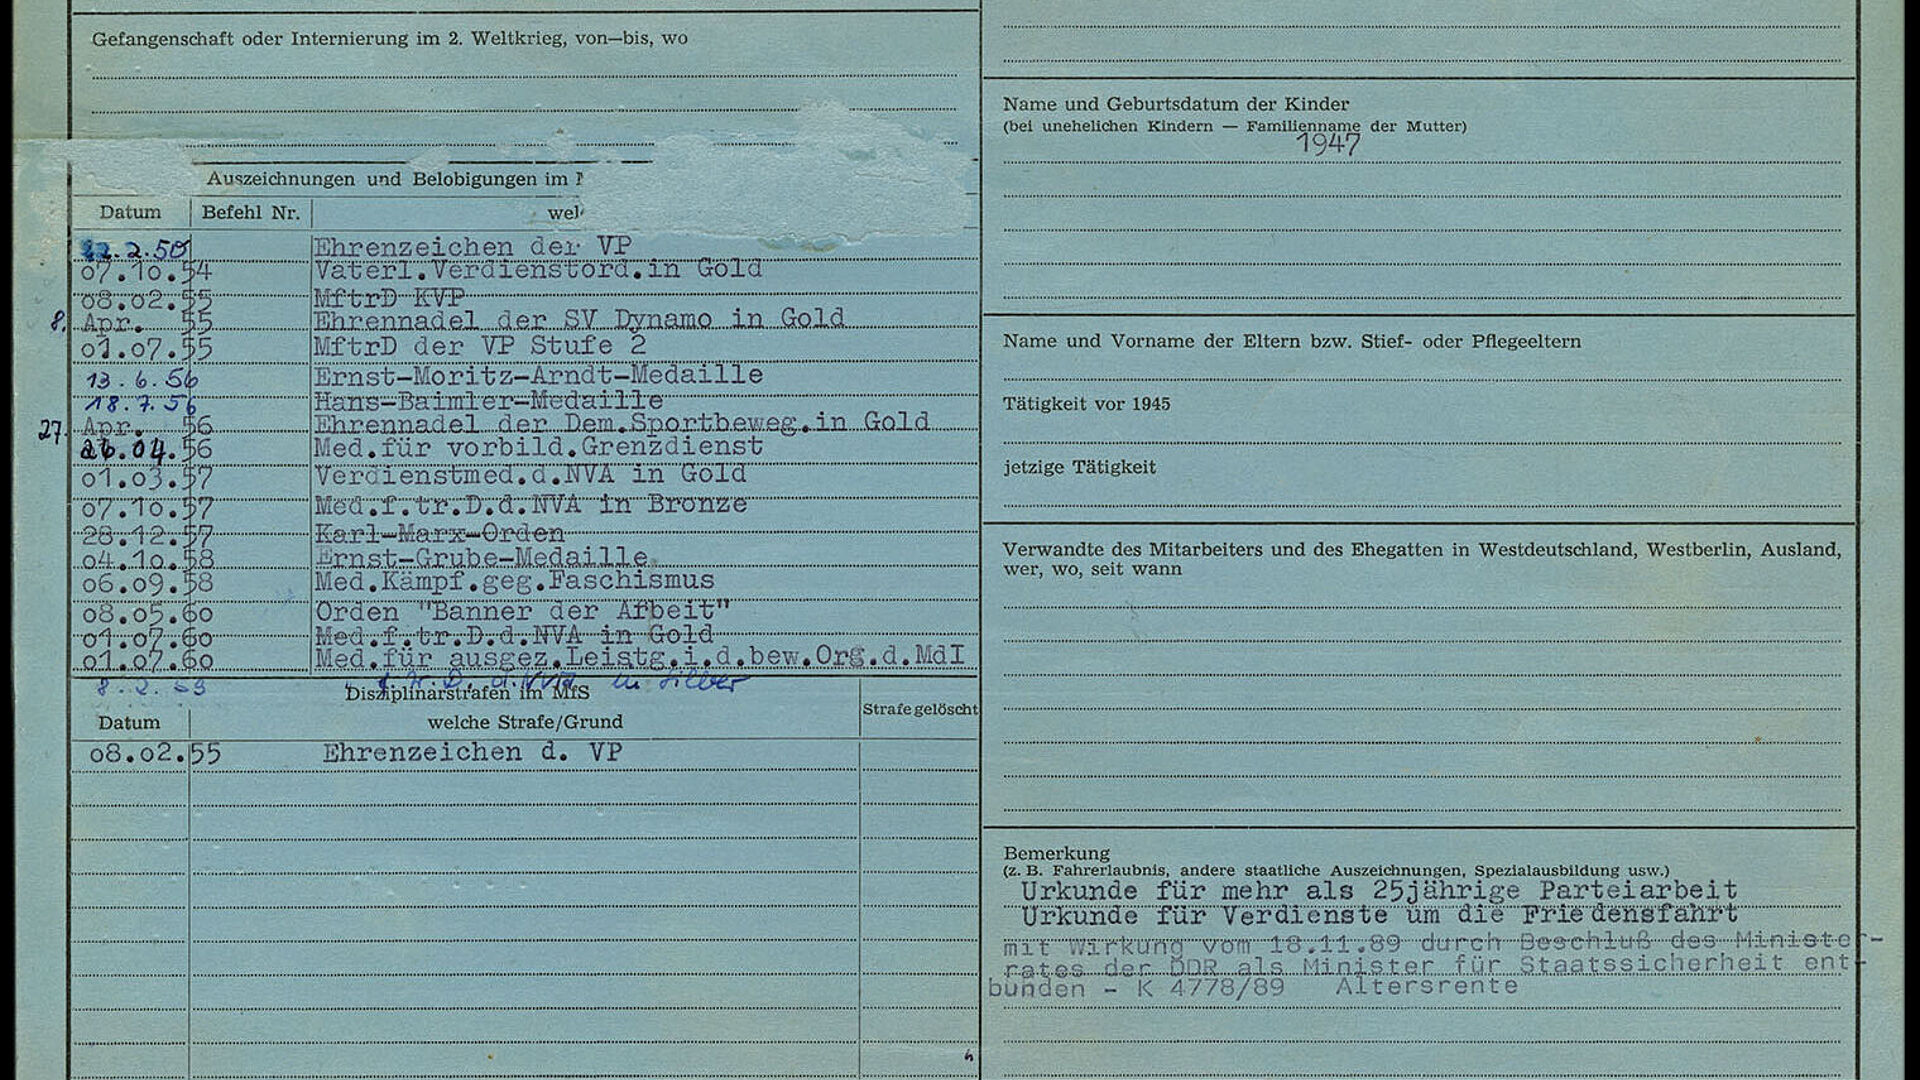 Gefangenschaft oder Internierung im 2. Weltkrieg, von—bis, wo
Auszeichnungen und Belobigungen im
Datum Befehl Nr. wel
.2.50 Ehrenzeichen der VP
07.10.54 Vaterl.Verdienstord.in Gold
08.02.55 MftrD KVP
8. Apr. 55 Ehrennadel der SV Dynamo in Gold
01.07.55 MftrD der VP Stufe 2
13.6.56 Ernst-Moritz-Arndt-Medaille
18.7.56 Hans-Baimler-Medaille
27. Apr. 56 Ehrennadel der Dem.Sportbeweg.in Gold
26.04.56 Med.für vorbild.Grenzdienst
01.03.57 Verdienstmed.d.NVA in Gold
07.10.57 Med.f.tr.D.d.NVA in Bronze
28.12.57 Karl-Marx-Orden
04.10.58 Ernst-Grube-Medaille
06.09.58 Med.Kämpf.geg.Faschismus
08.05.60 Orden "Banner der Arbeit"
01.07.60 Med.f.tr.D.d.NVA in Gold
01.07.60 Med.für ausgez.Leistg.i.d.bew.Org.d.MdI
d.NVA in Silber
Disziplinarstrafen im MfS
Datum welche Strafe/Grund Strafe gelöscht
08.02.55 Ehrenzeichen d. VP
Name und Geburtsdatum der Kinder
(bei unehelichen Kindern — Familienname der Mutter)
1947
Name und Vorname der Eltern bzw. Stief- oder Pflegeeltern
Tätigkeit vor 1945
jetzige Tätigkeit
Verwandte des Mitarbeiters und des Ehegatten in Westdeutschland, Westberlin, Ausland,
wer, wo, seit wann
Bemerkung
(z. B. Fahrerlaubnis, andere staatliche Auszeichnungen, Spezialausbildung usw.)
Urkunde für mehr als 25jährige Parteiarbeit
Urkunde für Verdienste um die Friedensfahrt
mit Wirkung vom 18.11.89 durch Beschluß des Minister-
rates der DDR als Minister für Staatssicherheit ent-
bunden - K 4778/89 Altersrente